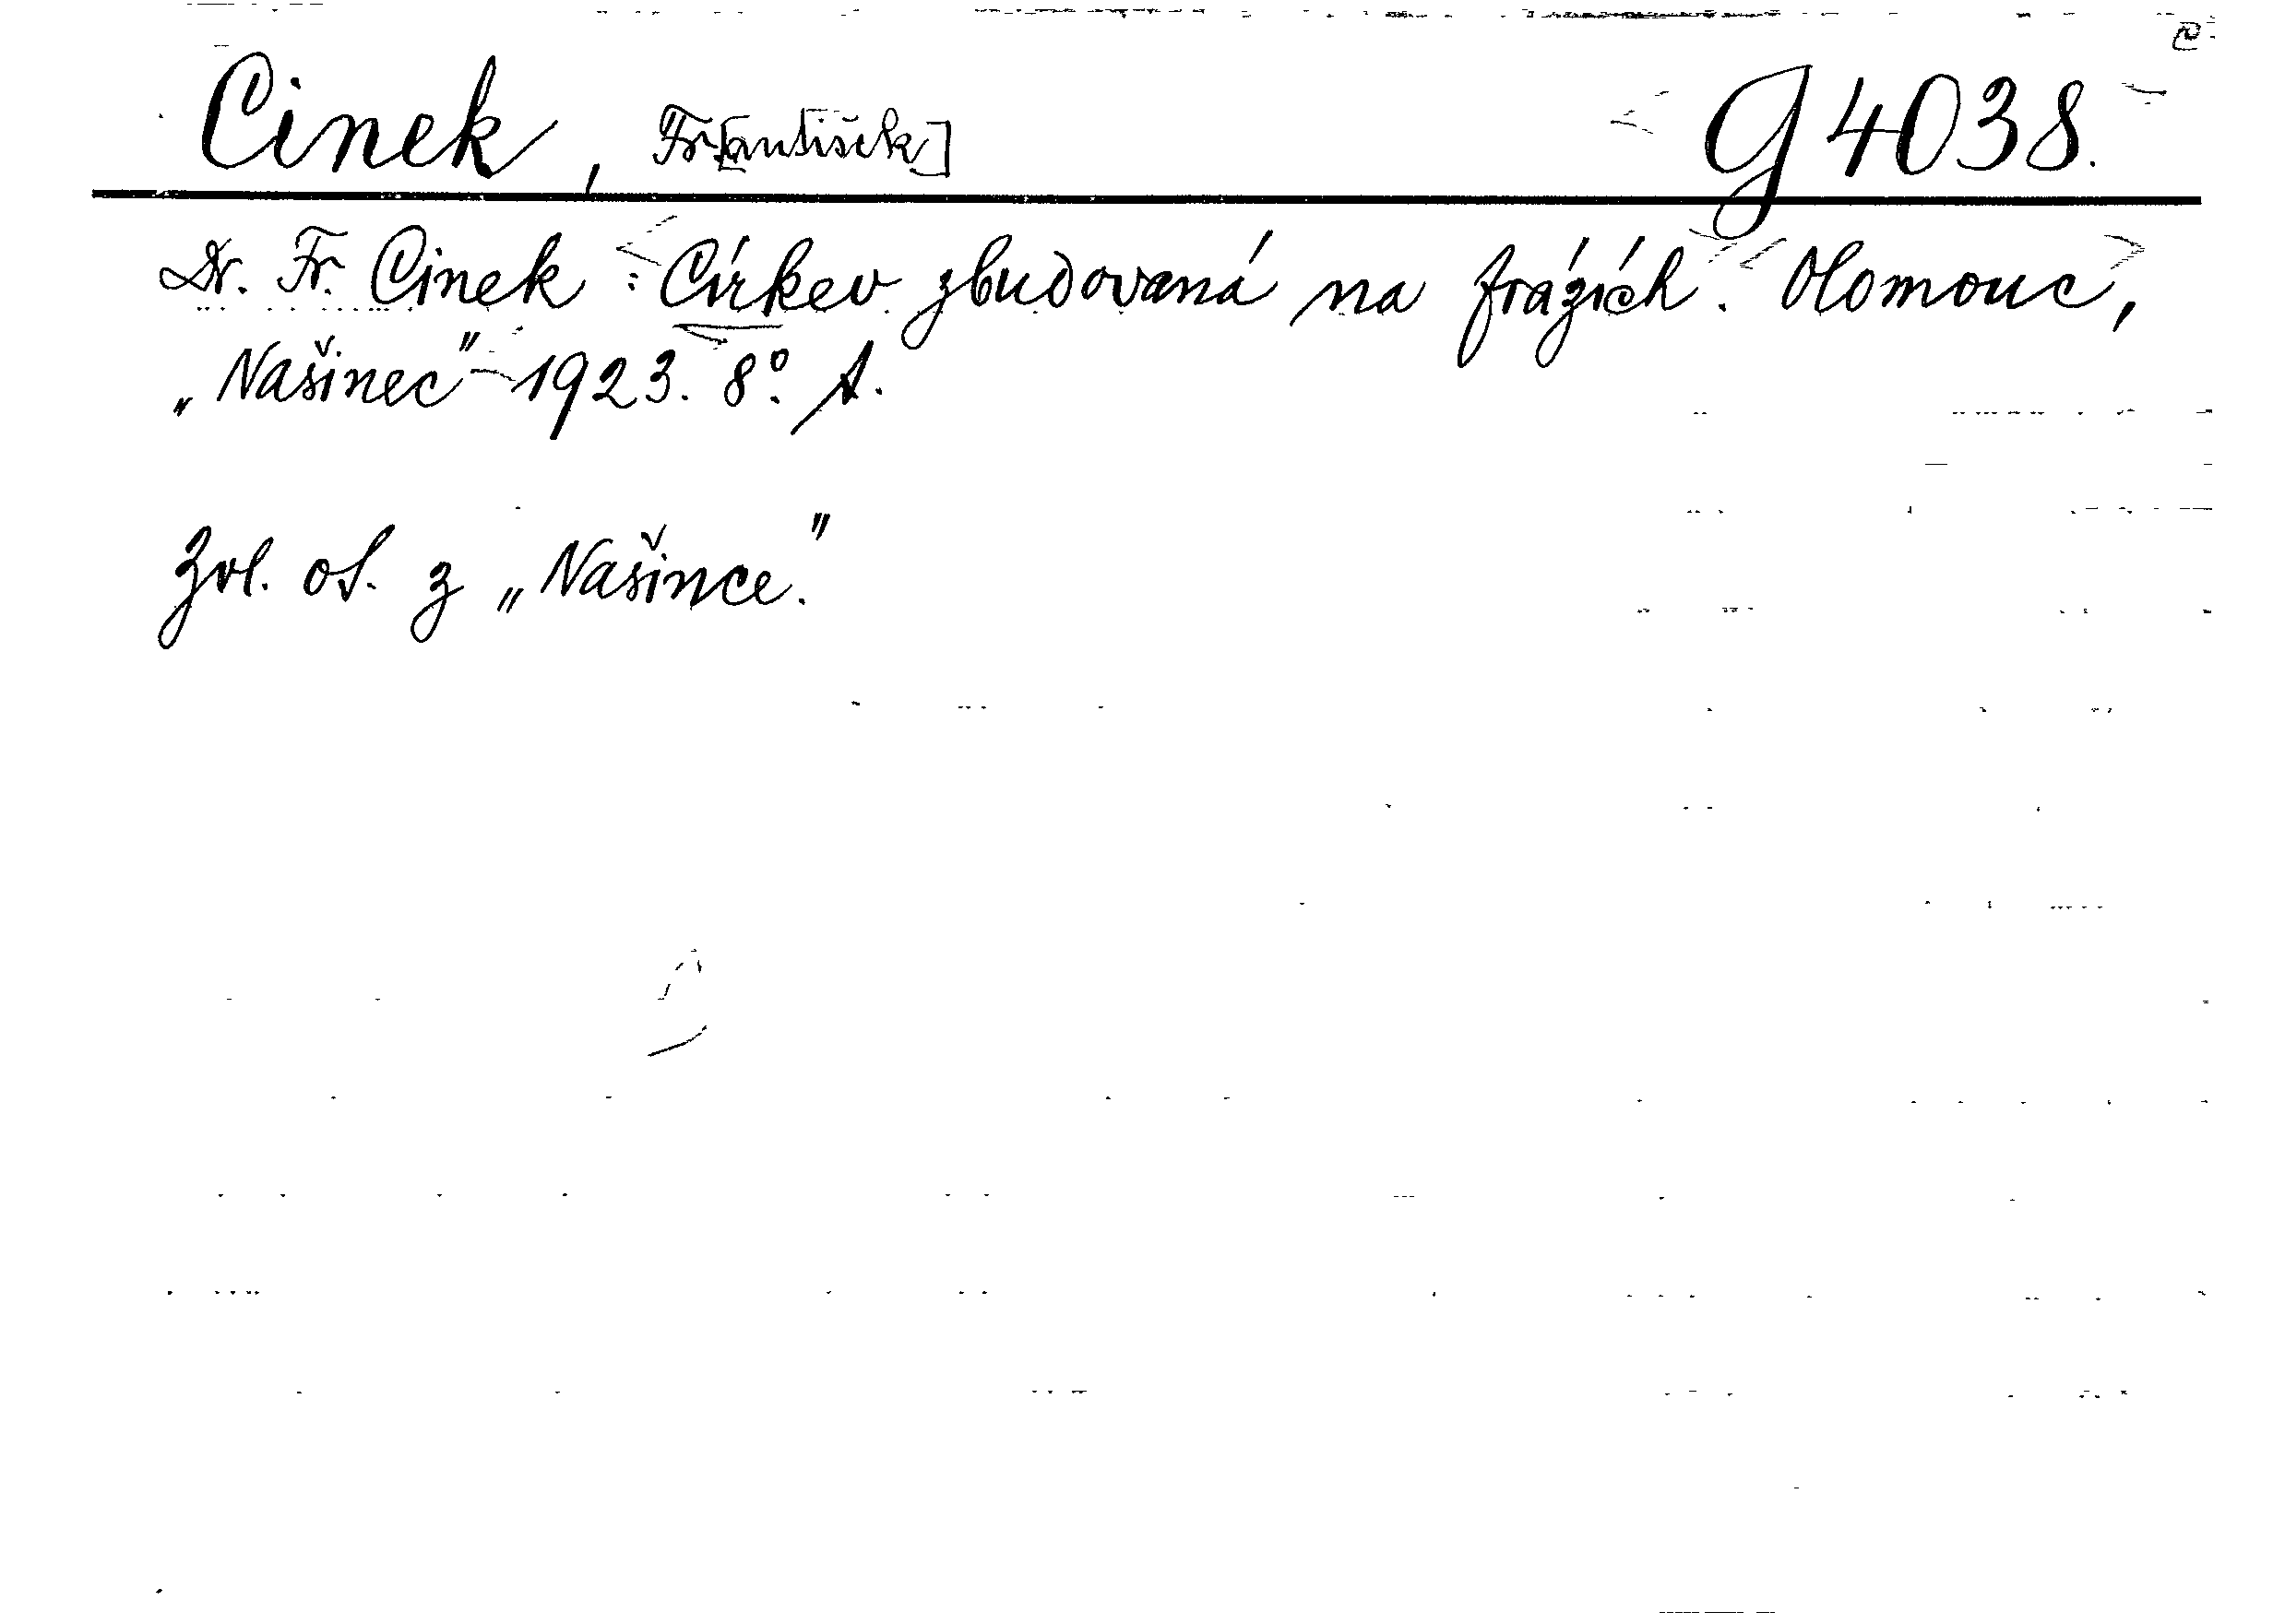 Cinek, Fr[antišek] G 4038.
Dr. Fr. Cinek: Církev zbudovaná na frázích. Olomouc,
„Našinec" 1923. 8°.
Zvl. ot. z „Našince."